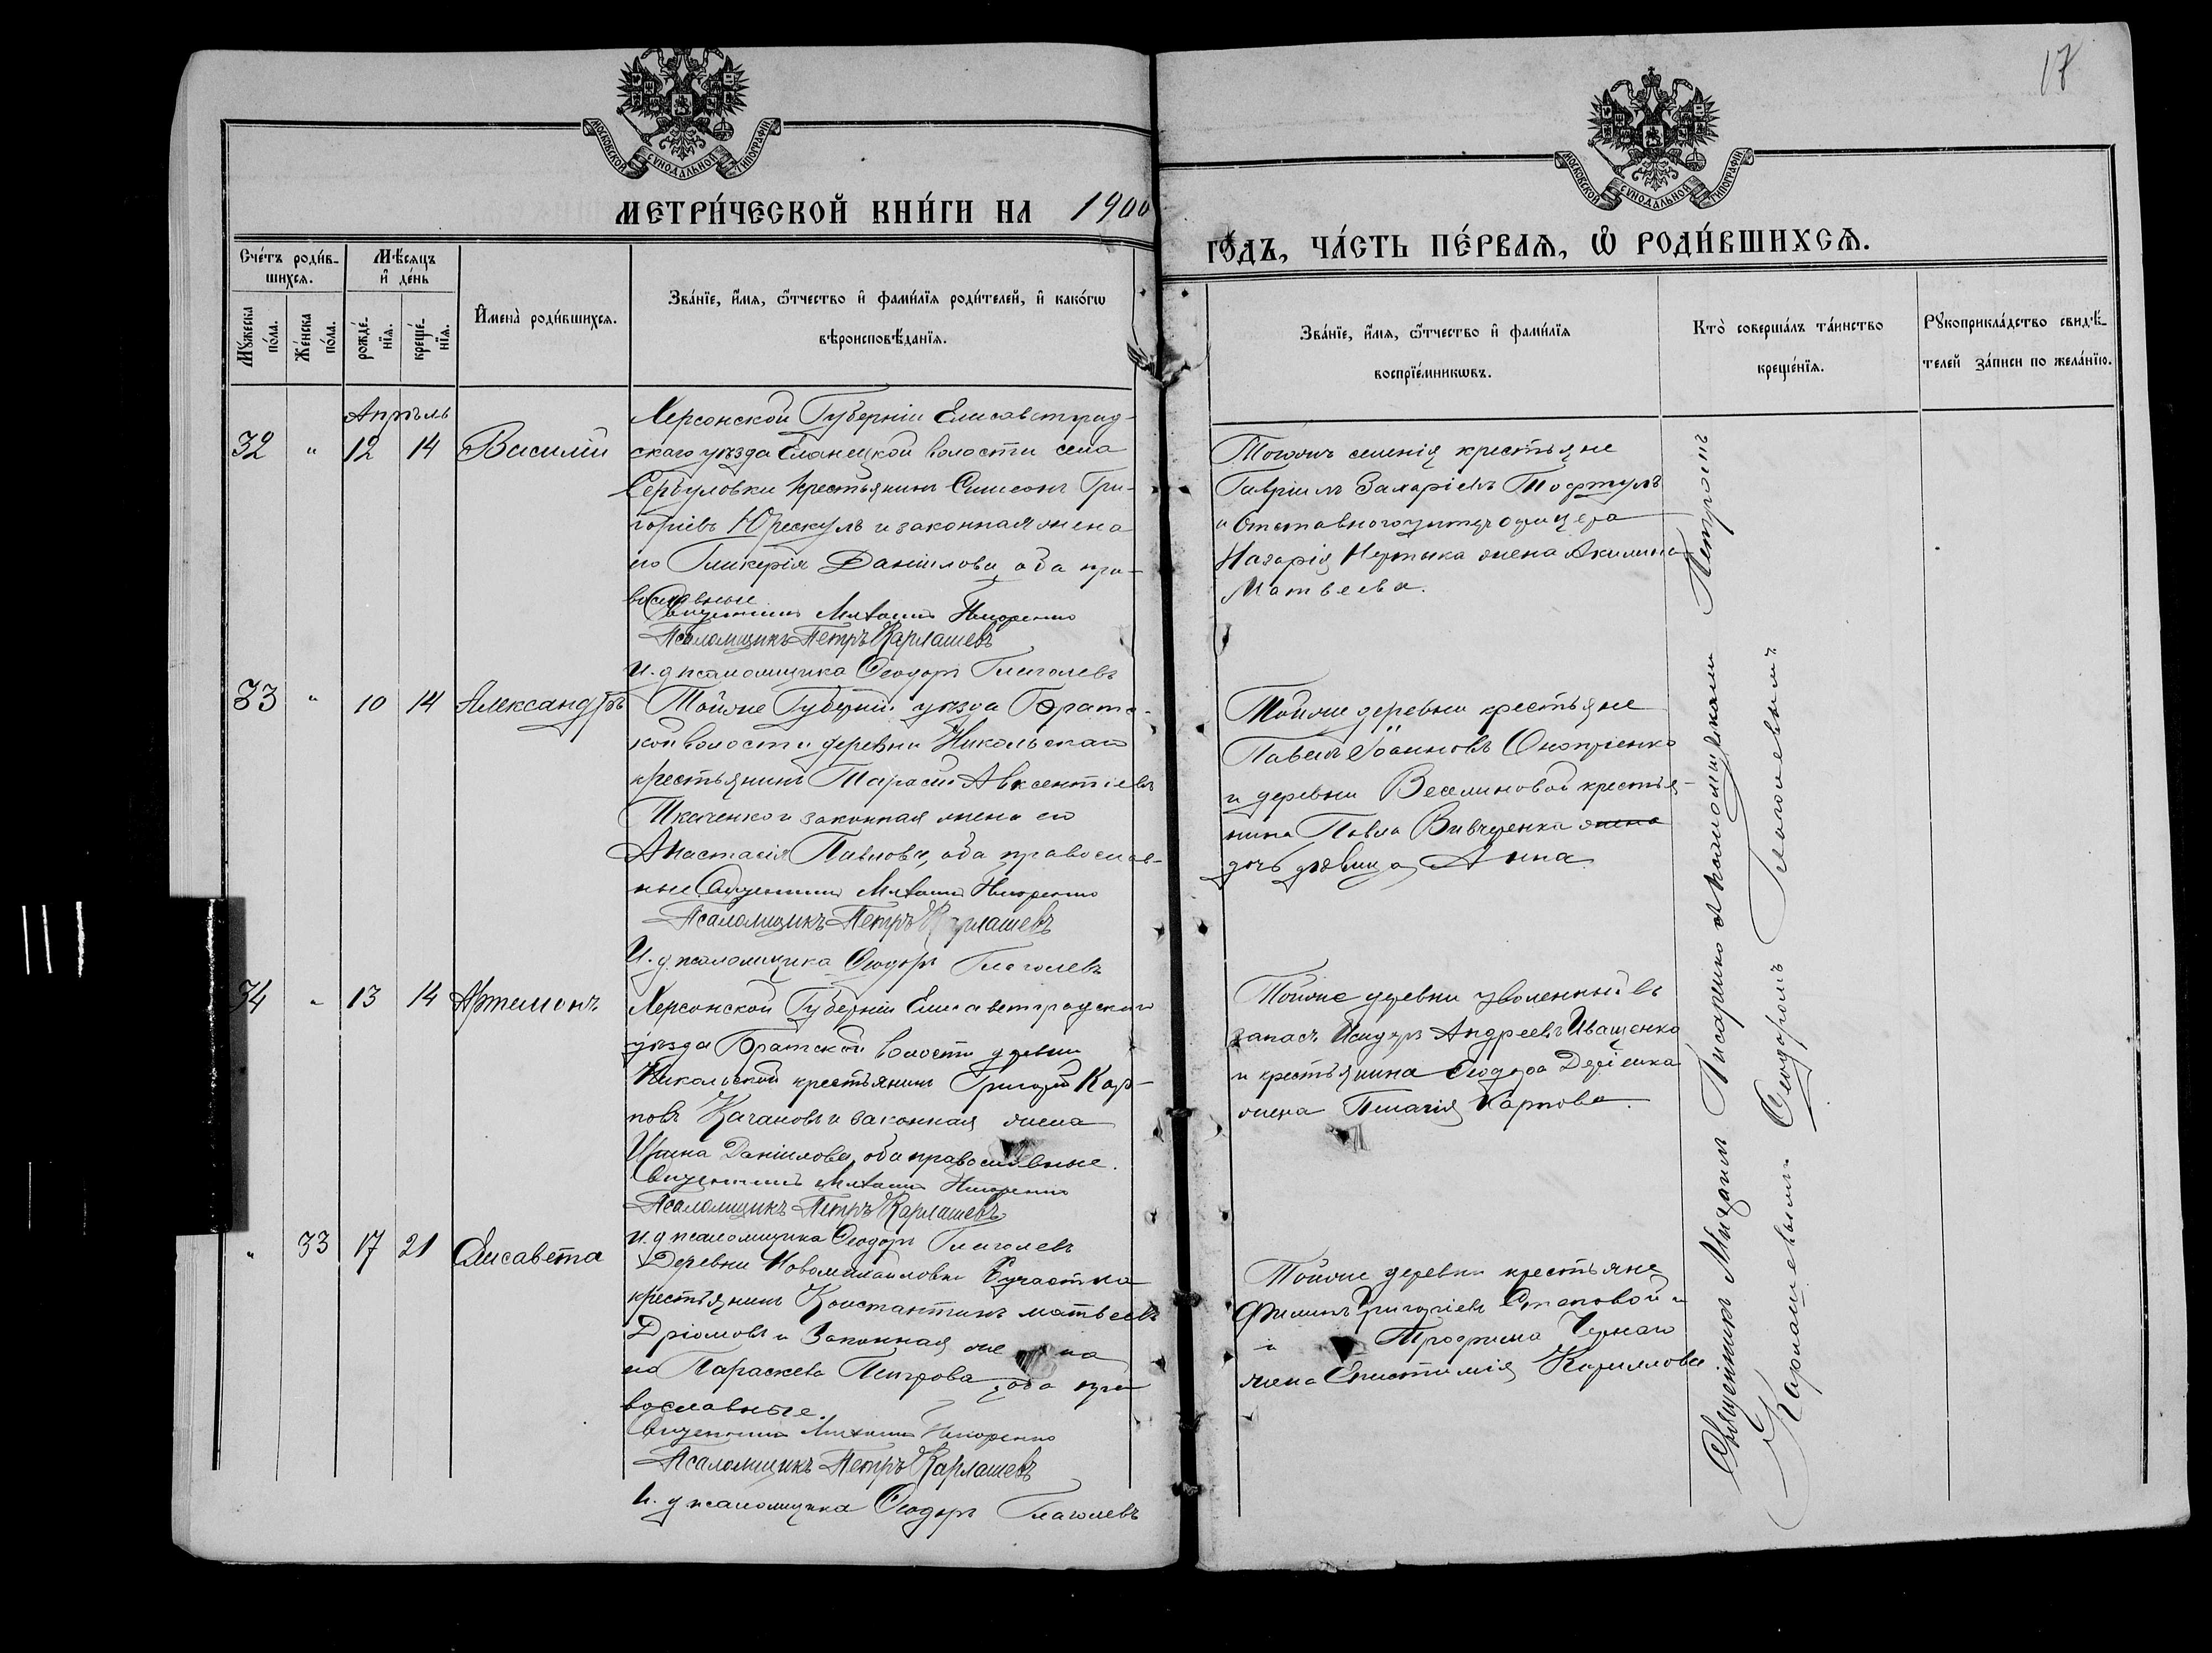 17
МОСКОВСКОЙ СУНОДАЛЬНОЙ ТИПОГРАФІИ
МОСКОВСКОЙ СУНОДАЛЬНОЙ ТИПОГРАФІИ
МЕТРИ́ЧЕСКОЙ КНИ́ГИ НА 1900
ГО́ДЪ, ЧА́СТЬ ПЕ́РВАѦ, Ѡ РОДИ́ВШИХСѦ.
Сче́тъ роди́в-
шихсѧ.
Мꙋ́жеска
по́ла.
Же́нска
по́ла.
Мѣ́сѧцъ
и҆ де́нь
рожде́-
нїѧ.
креще́-
нїѧ.
И҆мена̀ роди́вшихсѧ.
Зва́нїе, и҆́мѧ, ѻ҆́тчество и҆ фами́лїѧ роди́телей, и҆ како́гѡ
вѣроисповѣ́данїѧ.
Зва́нїе, и҆́мѧ, ѻ҆́тчество и҆ фами́лїѧ
воспрїе́мникѡвъ.
Кто̀ соверша́лъ та́инство
креще́нїѧ.
Рꙋкоприкла́дство свидѣ́-
телей за́писи по жела́нїю.
Апрѣль
32 " 12 14 Василій
Херсонской Губерніи Елисаветград-
скаго уѣзда Еланецкой волости села
Сербуловки крестьянинъ Симеонъ Гри-
горіевъ Юрескулъ и законная жена
его Гликерія Даніилова, оба пра-
вославные
Священникъ Михаилъ
Псаломщикъ Петръ Карлашевъ
И. д псаломщика Ѳеодоръ Глаголевъ
Тогоже селенія крестьяне
Гавріилъ Захаріевъ Тофтулъ
и Отставного унтеръ офицера
Назарія жена Акилина
Матвеева.
33 " 10 14 Александръ
Тойже Губерніи уѣзда Братс-
кой волости деревни Никольской
крестьянинъ Тарасій Авксентіевъ
Ткаченко и законная жена его
Анастасія Павлова, оба православ-
ные Священникъ Михаилъ
Псаломщикъ Петръ Карлашевъ
И. д псаломщика Ѳеодоръ Глаголевъ
Тойже деревни крестьяне
Павелъ Іоанновъ Оноприенко
и деревни Веселиновой крестья-
нина Павла Вивчаренка жена
дочь дѣвица Анна
34 " 13 14 Артемонъ
Херсонской Губерніи Елисаветградскаго
уѣзда Братской волости деревни
Никольской крестьянинъ Григорій Кар-
повъ Качановъ и законная жена
Ирина Даніилова, оба православные.
Священникъ Михаилъ
Псаломщикъ Петръ Карлашевъ
И. д псаломщика Ѳеодоръ Глаголевъ
Тойже деревни уволенный въ
запасъ Исидоръ Андреевъ Иващенко
и крестьянина Ѳеодора
жена Пелагія Карпова.
" 33 17 21 Елисавета
Деревни Новомихайловки участка
крестьянинъ Константинъ Матвеевъ
Дріомовъ и Законная же на
его Параскева Петрова, оба пра
вославные.
Священникъ Михаилъ
Псаломщикъ Петръ Карлашевъ
И. д псаломщика Ѳеодоръ Глаголевъ
Тойже деревни крестьяне
Филипъ Григоріевъ Степовой и
и Трофима Чернаго
жена Епистимія Кириллова
Священникъ Михаилъ съ псаломщиками Петромъ
Карлашевымъ Ѳеодоромъ Глаголевымъ